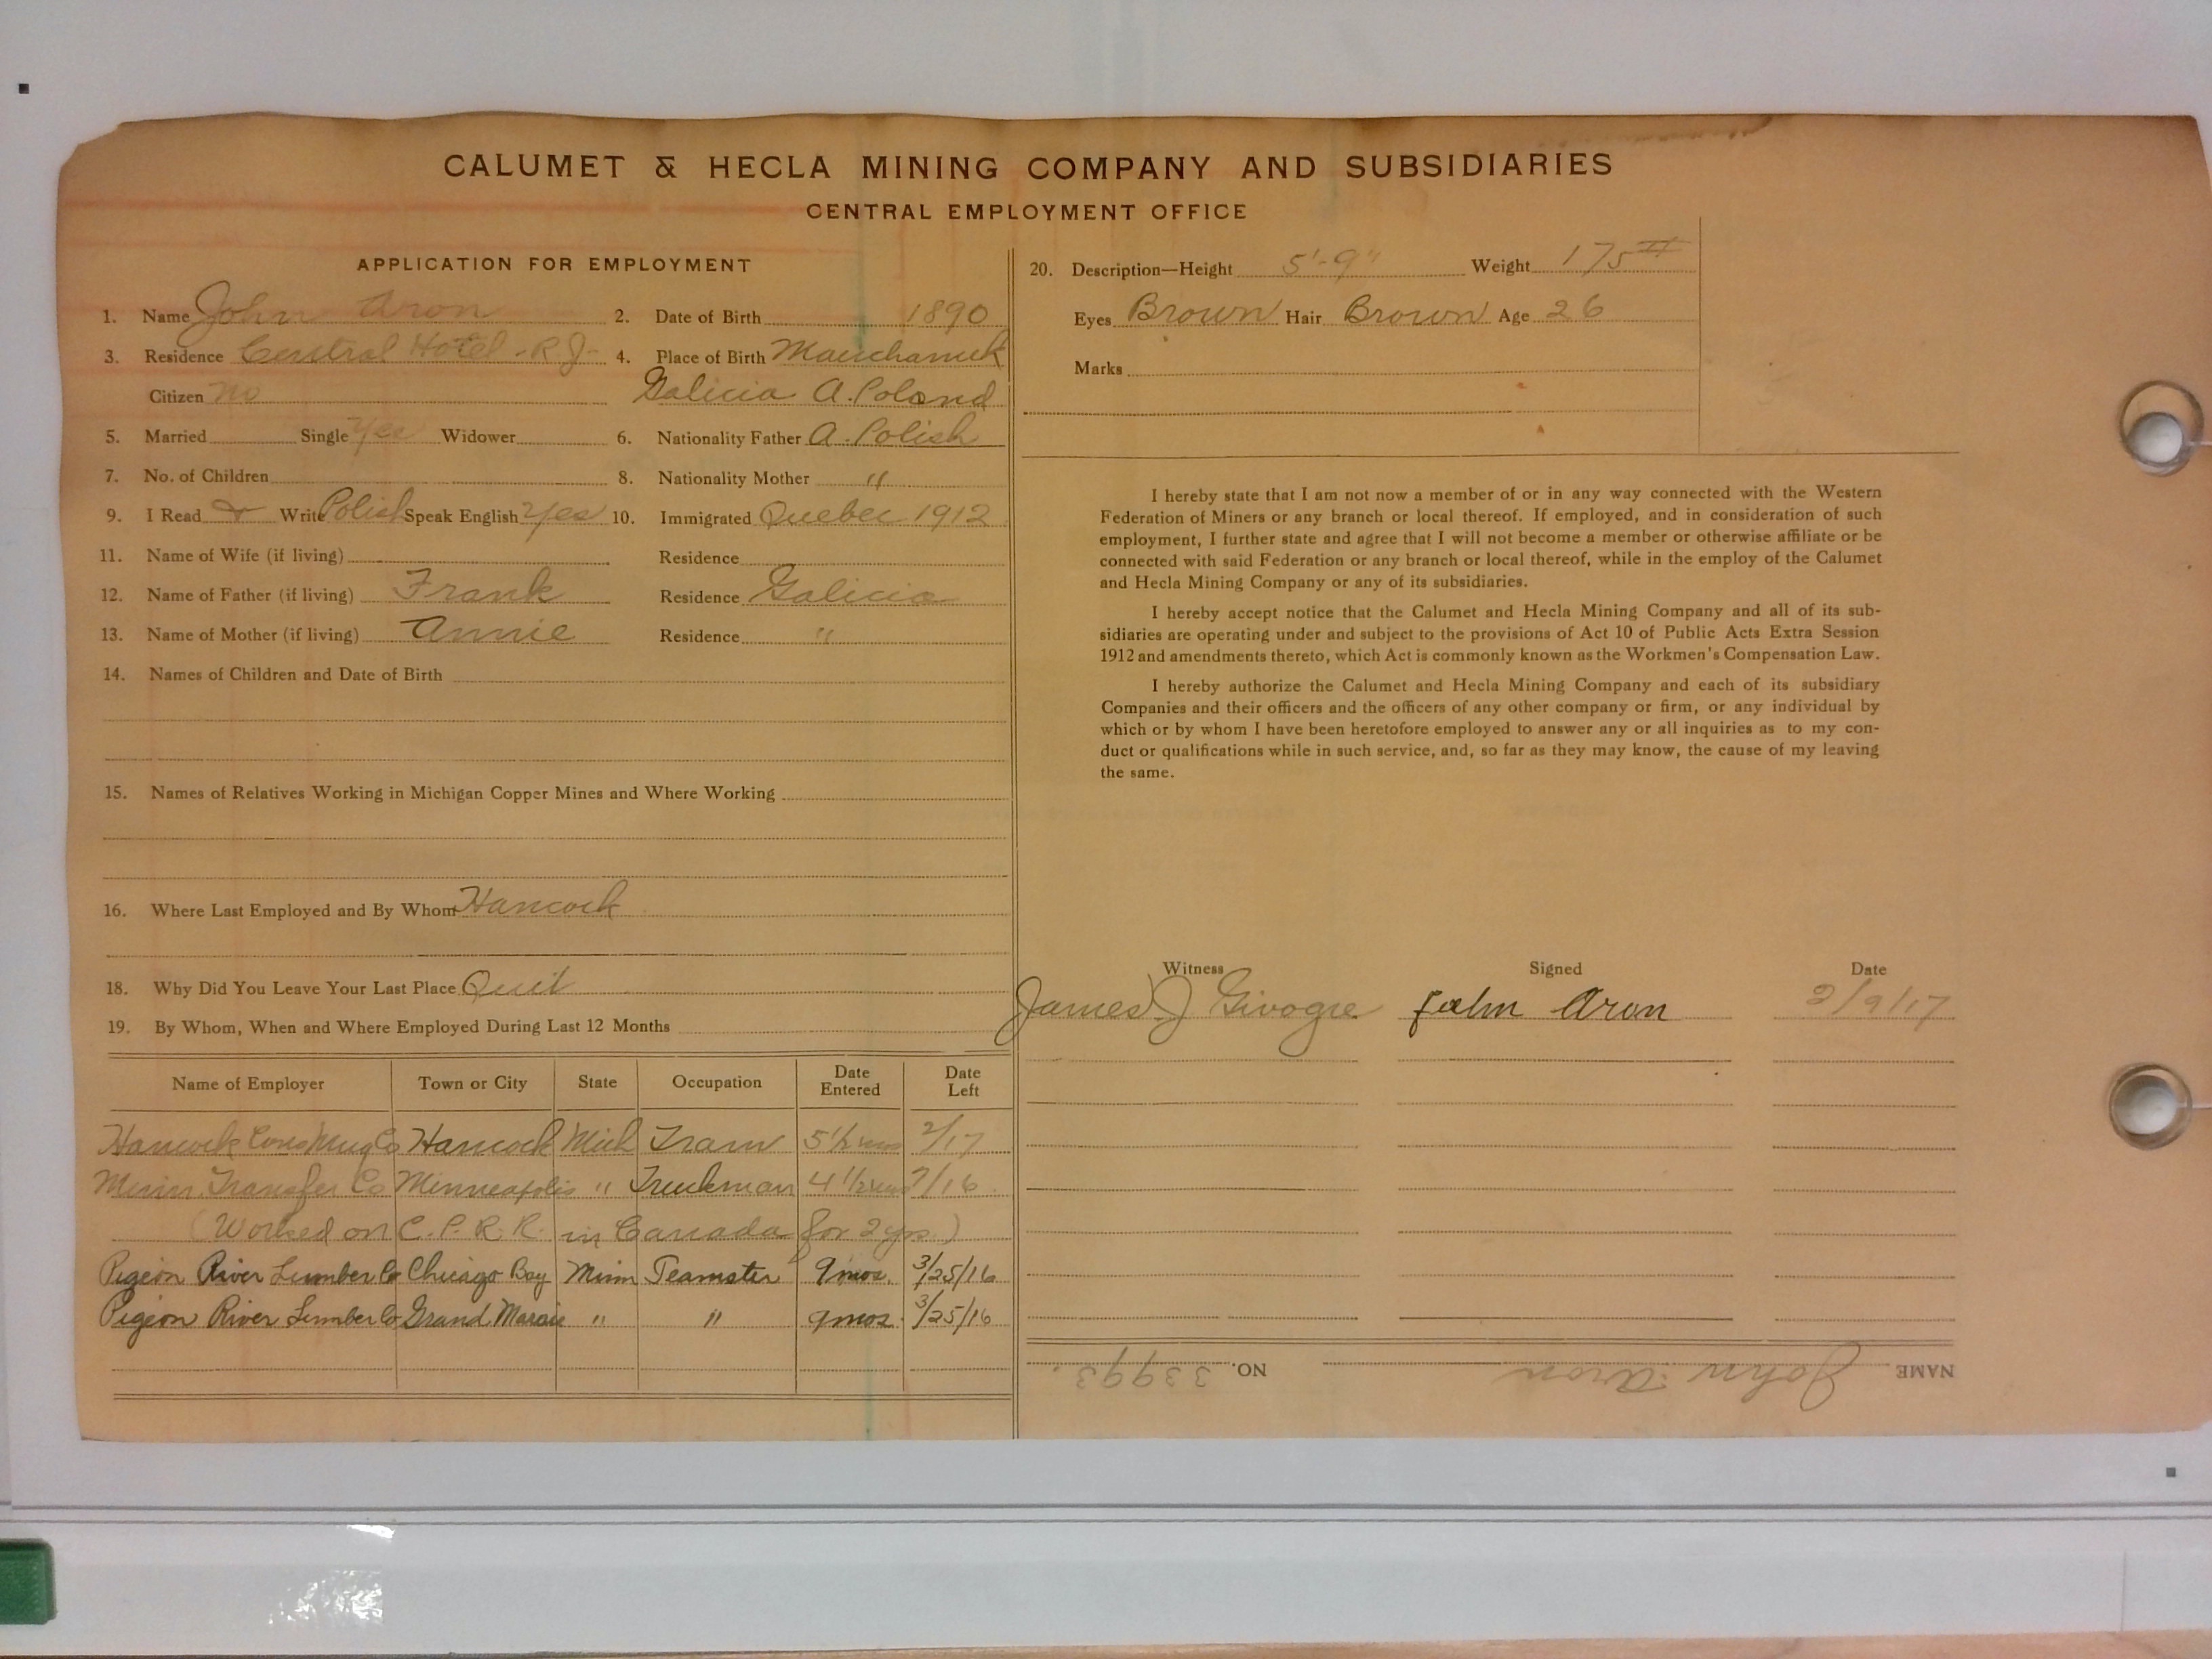 CALUMET & HECLA MINING COMPANY AND SUBSIDIARIES
CENTRAL EMPLOYMENT OFFICE
APPLICATION FOR EMPLOYMENT
1. Name John Aron 2. Date of Birth 1890
3. Residence Central Hotel - R J- 4. Place of Birth
Citizen No Galicia A. Poland
5. Married Single Yes Widower 6. Nationality Father A. Polish
7. No. of Children 8. Nationality Mother "
9. I Read & Write Polish Speak English Yes 10. Immigrated Quebec 1912
11. Name of Wife (if living) Residence
12. Name of Father (if living) Frank Residence Galicia
13. Name of Mother (if living) Annie Residence "
14. Names of Children and Date of Birth
15. Names of Relatives Working in Michigan Copper Mines and Where Working
16. Where Last Employed and By Whom Hancock
18. Why Did You Leave Your Last Place Quit
19. By Whom, When and Where Employed During Last 12 Months
Name of Employer Town or City State Occupation Date Entered Date Left
Hancock Cons Mng Co Hancock Mich Tram 5 1/2 mos 2/17
Minn. Transfer Co Minneapolis " Truckman 4 1/2 mos 7/16
(Worked on C. P. R. R. in Canada for 2 yrs.)
Pigeon River Lumber Co Chicago Bay Minn Teamster 9 mos. 3/25/16
Pigeon River Lumber Co Grand Marais " " 9 mos. 3/25/16
20. Description—Height 5'-9" Weight 175 #
Eyes Brown Hair Brown Age 26
Marks
I hereby state that I am not now a member of or in any way connected with the Western
Federation of Miners or any branch or local thereof. If employed, and in consideration of such
employment, I further state and agree that I will not become a member or otherwise affiliate or be
connected with said Federation or any branch or local thereof, while in the employ of the Calumet
and Hecla Mining Company or any of its subsidiaries.
I hereby accept notice that the Calumet and Hecla Mining Company and all of its sub-
sidiaries are operating under and subject to the provisions of Act 10 of Public Acts Extra Session
1912 and amendments thereto, which Act is commonly known as the Workmen's Compensation Law.
I hereby authorize the Calumet and Hecla Mining Company and each of its subsidiary
Companies and their officers and the officers of any other company or firm, or any individual by
which or by whom I have been heretofore employed to answer any or all inquiries as to my con-
duct or qualifications while in such service, and, so far as they may know, the cause of my leaving
the same.
Witness Signed Date
James J John Aron 2/9/17
NAME John Aron NO. 33993.